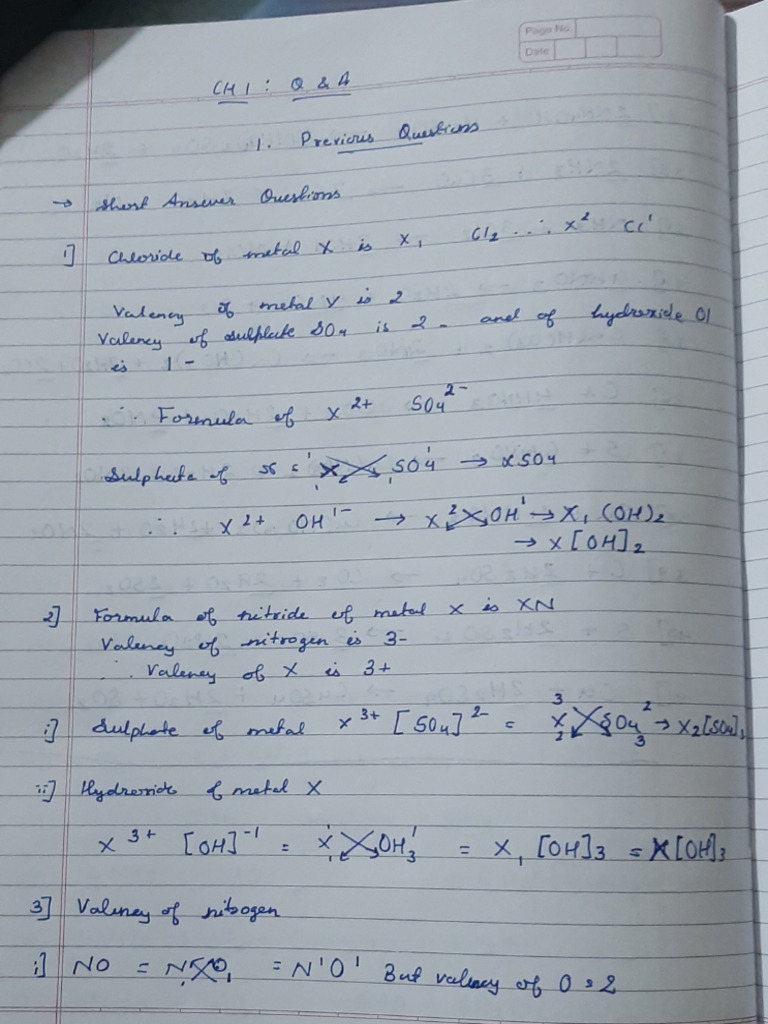 Page No.
Date
CH 1 : Q & A
1. Previous Questions
→ Short Answer Questions
1] Chloride of metal X is X₁ Cl₂ ∴ X² Cl¹
Valency of metal X is 2
Valency of sulphate SO₄ is 2- and of hydroxide OH
is 1-
∴ Formula of X²⁺ SO₄²⁻
Sulphate of X = X SO₄ → XSO₄
∴ X²⁺ OH¹⁻ → X² OH¹ → X₁ (OH)₂
→ X[OH]₂
2] Formula of nitride of metal X is XN
Valency of nitrogen is 3-
∴ Valency of X is 3+
i] Sulphate of metal X³⁺ [SO₄]²⁻ = X³₂ SO₄²₃ → X₂[SO₄]₃
ii] Hydroxide of metal X
X³⁺ [OH]⁻¹ = X¹₁ OH¹₃ = X₁ [OH]₃ = X[OH]₃
3] Valency of nitrogen
i] NO = N₁O₁ = N¹O¹ But valency of O = 2